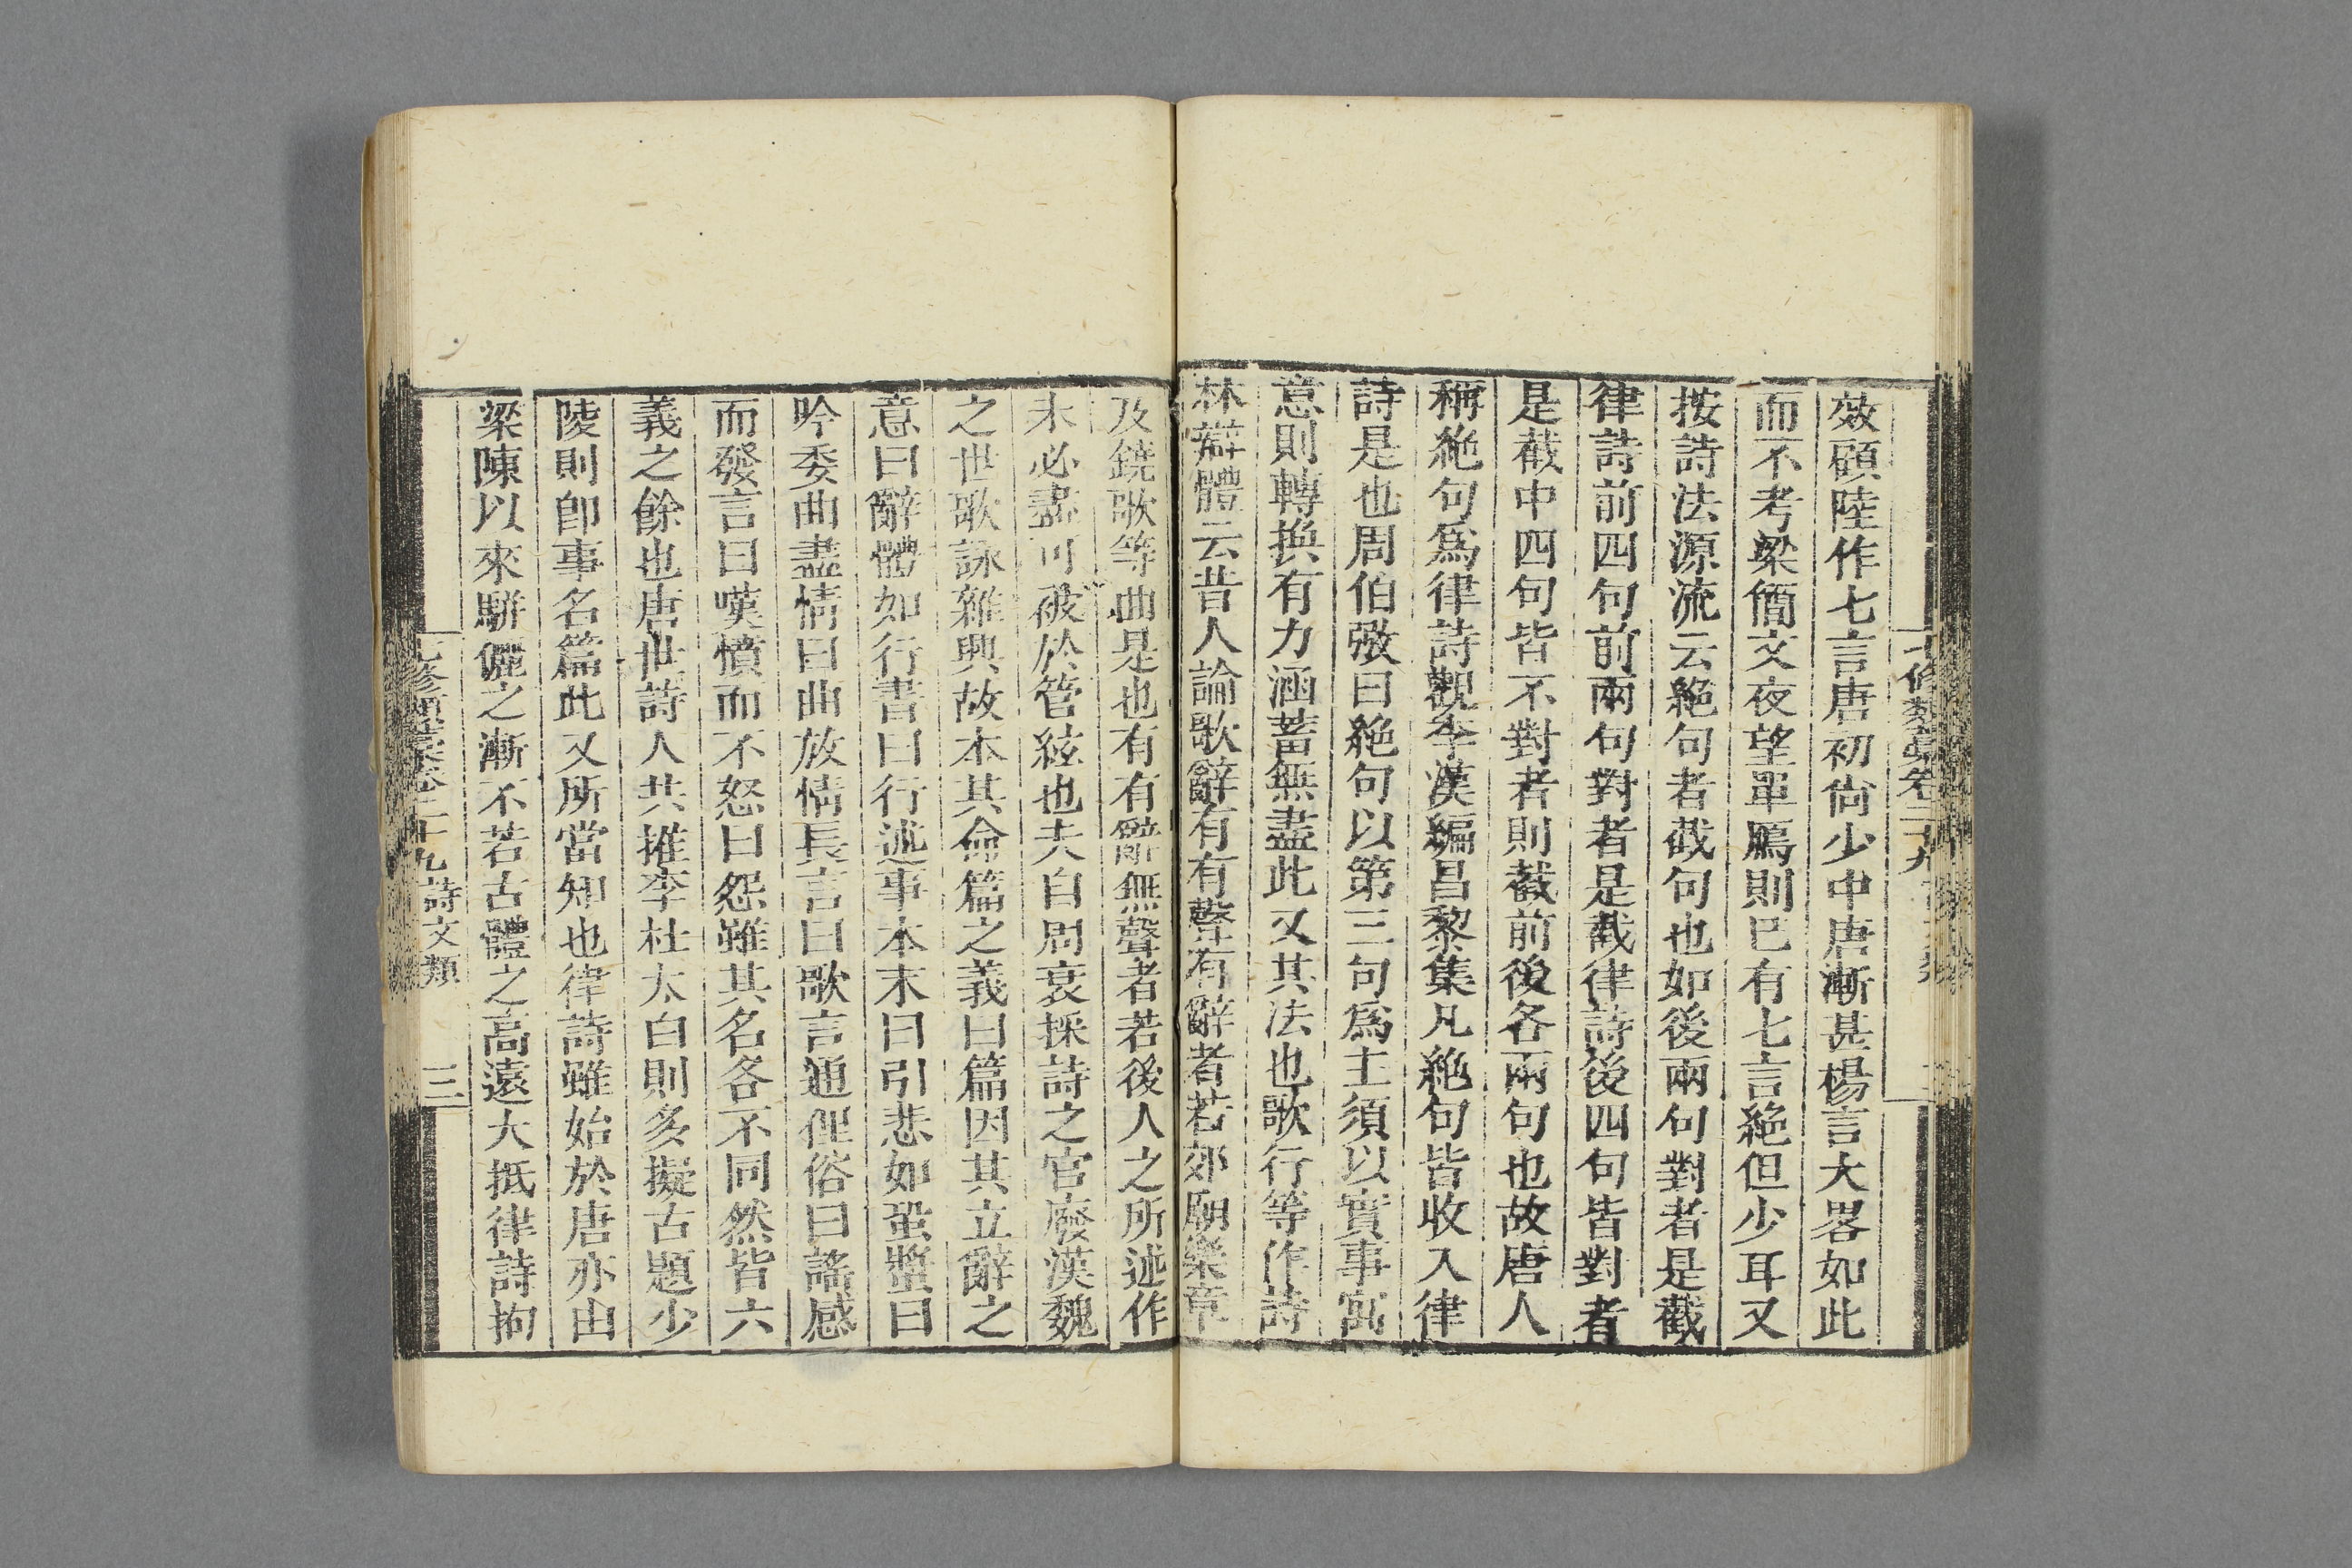 七修類藁卷二十九
效顧陸作七言唐初尙少中唐漸甚楊言大畧如此
而不考梁簡文夜望單鴈則已有七言絶但少耳又
按詩法源流云絶句者截句也如後兩句對者是截
律詩前四句前兩句對者是截律詩後四句皆對者
是截中四句皆不對者則截前後各兩句也故唐人
稱絶句爲律詩觀李漢編昌黎集凡絶句皆收入律
詩是也周伯弜曰絶句以第三句爲主須以實事寓
意則轉換有力涵蓄無盡此又其法也歌行等作詩
林辯體云昔人論歌辭有有聲有辭者若郊廟樂章
及鐃歌等曲是也有有辭無聲者若後人之所述作
未必盡可被於管絃也夫自周衰採詩之官廢漢魏
之世歌詠雜興故本其命篇之義曰篇因其立辭之
意曰辭體如行書曰行述事本末曰引悲如蛩螿曰
吟委曲盡情曰曲放情長言曰歌言通俚俗曰謠感
而發言曰嘆憤而不怒曰怨雖其名各不同然皆六
義之餘也唐世詩人共推李杜太白則多擬古題少
陵則卽事名篇此又所當知也律詩雖始於唐亦由
梁陳以來駢儷之漸不若古體之高遠大抵律詩拘
七修類藁卷二十九 詩文類 三